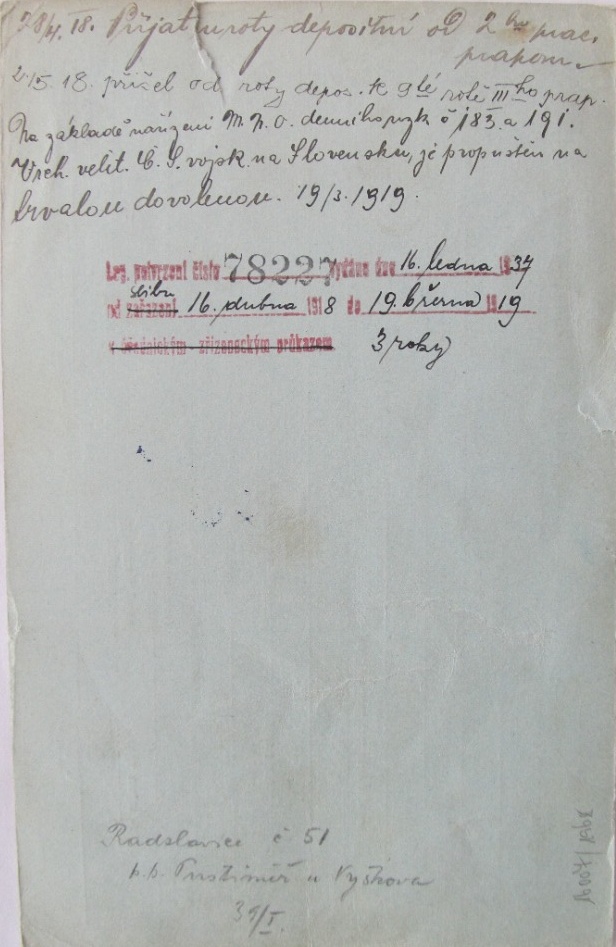 28/4. 18. Přijat u roty depositní od 2ho prac.
praporu.
2/5. 18. přišel od roty depos. k 9té rotě IIIho prap.
Na základě nařízení M.N.O. denního rozk č 183. a 191.
Vrch. velit. Č. S. vojsk na Slovensku, je propuštěn na
trvalou dovolenou. 19/3. 1919.
Leg. potvrzení číslo 78227 vydáno dne 16. ledna 1937
slibu
od zařazení 16. dubna 1918 do 19. března 1919
v úřednickým - zřízeneckým průkazem 3 roky
Radslavice č 51
p.p. Pustiměř u Vyškova